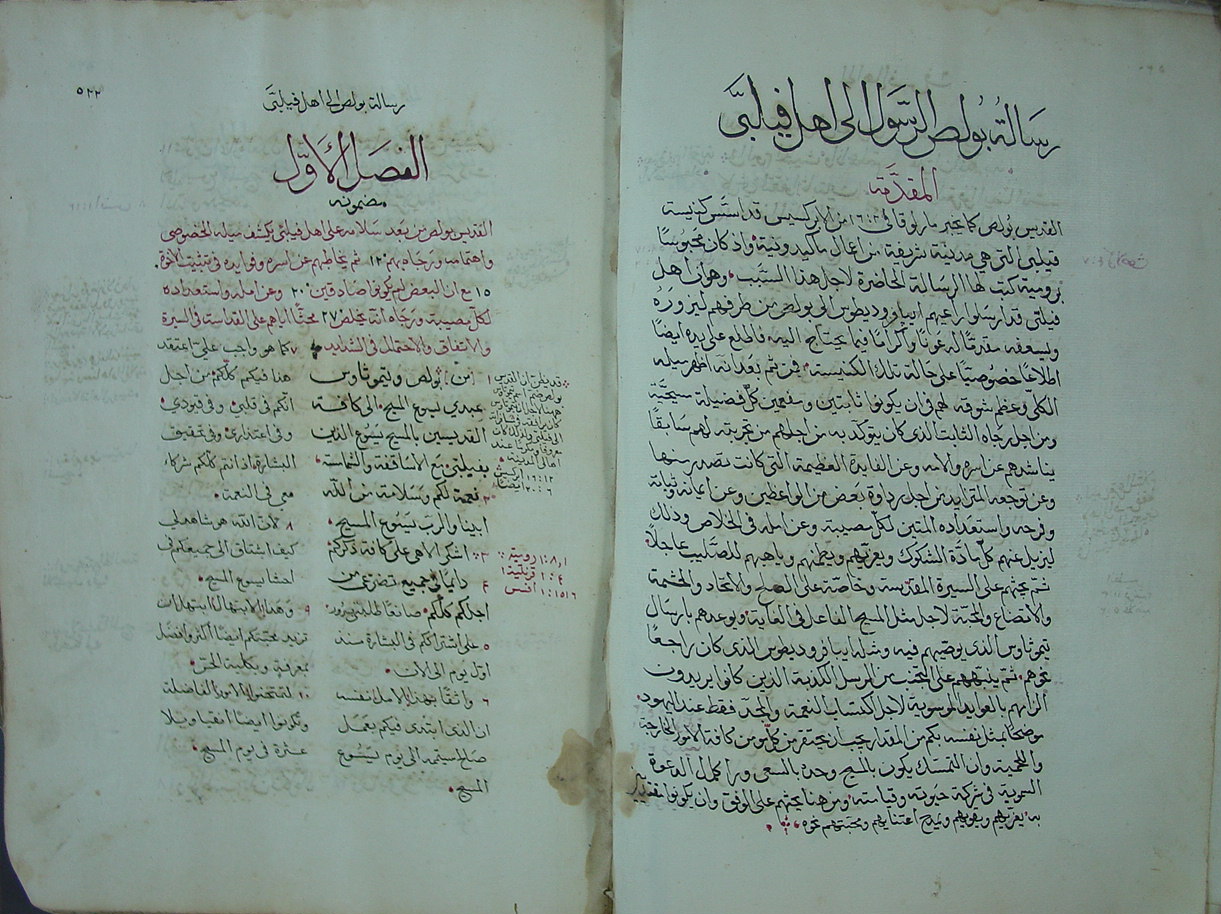 رسالة بولص الرسول الى اهل فيلبى
المقدمة
القديس بولص كما يخبر مار لوقا في ١٦: من الابركسيس قد استس كنيسة
فيلبى التي هي مدينة شريفة من اعمال ماكيدونية واذ كان محبوسًا
برومية كتب لها الرسالة الحاضرة لاجل هذا السبب وهو ان اهل
فيلبى قد ارسلوا راعيهم ابيافروديطوس الى بولص من طرفهم ليزوره
ويسعفه مقدمًا له عونًا واكرامًا فيما يحتاج اليه فاطلع على يده ايضًا
اطلاعًا خصوصيًا على حالة تلك الكنيسة فمن ثم بعد انه اظهر ميله
الكلي وعظم شوقه لهم في ان يكونوا ثابتين ومفعمين كل فضيلة مسيحية
ومن اجل رجاه الثابت الذي كان يتوكد به من اجلهم من تجربته لهم سابقًا
يناشدهم عن اسره والامه وعن الفايدة العظيمة التي كانت تصدر منها
وعن توجعه المتزايد من اجل رداوة بعض من الواعظين وعن اعانة وثباته
وفرحه واستعداده المتين لكل مصيبة وعن امله في الخلاص وذلك
ليزيل عنهم كل مادة الشكوك ويعزيهم ويطمنهم وياهبهم للصليب عاجلًا
ثم يحثهم على السيرة المقدسة وخاصة على الصلح والاتحاد والحشمة
والاتضاع والمحبة لاجل مثل المسيح الفاعل في الغاية ويوعدهم بارسال
تيموثاوس الذي يوصيهم فيه ومثله ابيافروديطوس الذي كان راجعًا
نحوهم ثم ينبههم على التجنب من الرسل الكذبة الذين كانوا يريدون
الزامهم بالعوايد الموسوية لاجل اكتساب النعمة والمجد فقط عند اليهود
موضحًا بمثل نفسه بكم من المقدار يجب ان يحتقر من كل مومن كافة الامور الخارجة
واللحمية وان التمسك يكون بالمسيح وحده بالسعي ورا كمال الدعوة
السموية في شركة حيوته وقيامته ومن هنا يحثهم على الوفق وان يكونوا مقتديين
به يعزيهم ويقويهم ويمدح اعتنايهم ومحبتهم نحوه
٥٢٢
رسالة بولص الى اهل فيلبى
الفصل الاول
مضمونه
القديس بولص من بعد سلامه على اهل فيلبى يكشف ميله الخصوصي
واهتمامه ورجاه بهم ١٢ ثم يخاطبهم عن اسره وفوايده في تثبيت الاخوة
١٥ مع ان البعض لم يكونوا صادقين ٢٠ وعن امله واستعداده
لكل مصيبة ورجاه انه يخلص ٢٧ محثًا اياهم على القداسة في السيرة
والاتفاق والاحتمال في الشدايد
١ من بولص وتيموثاوس
عبدي يسوع المسيح الى كافة
القديسين بالمسيح يسوع الذين
بفيلبى مع الاساقفة والشمامسة
٢ نعمة لكم وسلامة من الله
ابينا والرب يسوع المسيح
٣ اشكر الاهي على كافة ذكركم
٤ دايمًا في جميع تضرعي من
اجلكم كلكم صانعًا طلبتي بسرور
٥ على اشتراككم في البشارة منذ
اول يوم الى الان
٦ واثقًا بهذا الامل نفسه
ان الذي ابتدى فيكم بعمل
صالح سيتمه الى يوم يسوع
المسيح
٧ كما هو واجب علي ان اعتقد
هذا فيكم كلكم من اجل
انكم في قلبي وفي قيودي
وفي اعتذاري وفي تحقيق
البشارة اذ انتم كلكم شركاء
معي في النعمة
٨ لان الله هو شاهد لي
كيف اشتاق الى جميعكم في
احشا يسوع المسيح
٩ وبهذا الابتهال ابتهل ان
تزيد محبتكم ايضًا اكثر وافضل
بمعرفة وبكلية الحس
١٠ لتمتحنوا الامور الفاضلة
وتكونوا ايضًا انقيا وبلا
عثرة في يوم المسيح
رومية ١: ٨
قرنتية ١: ٤
افسس ١: ١٥ ١٦